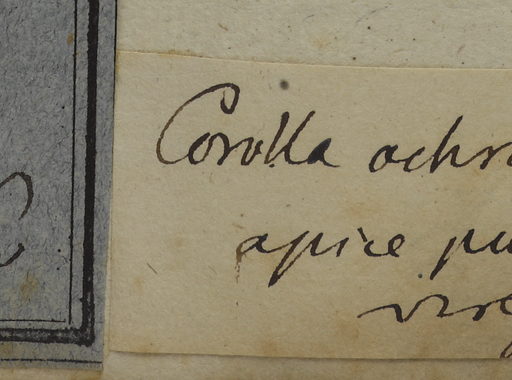 Corolla ochr
apice pu